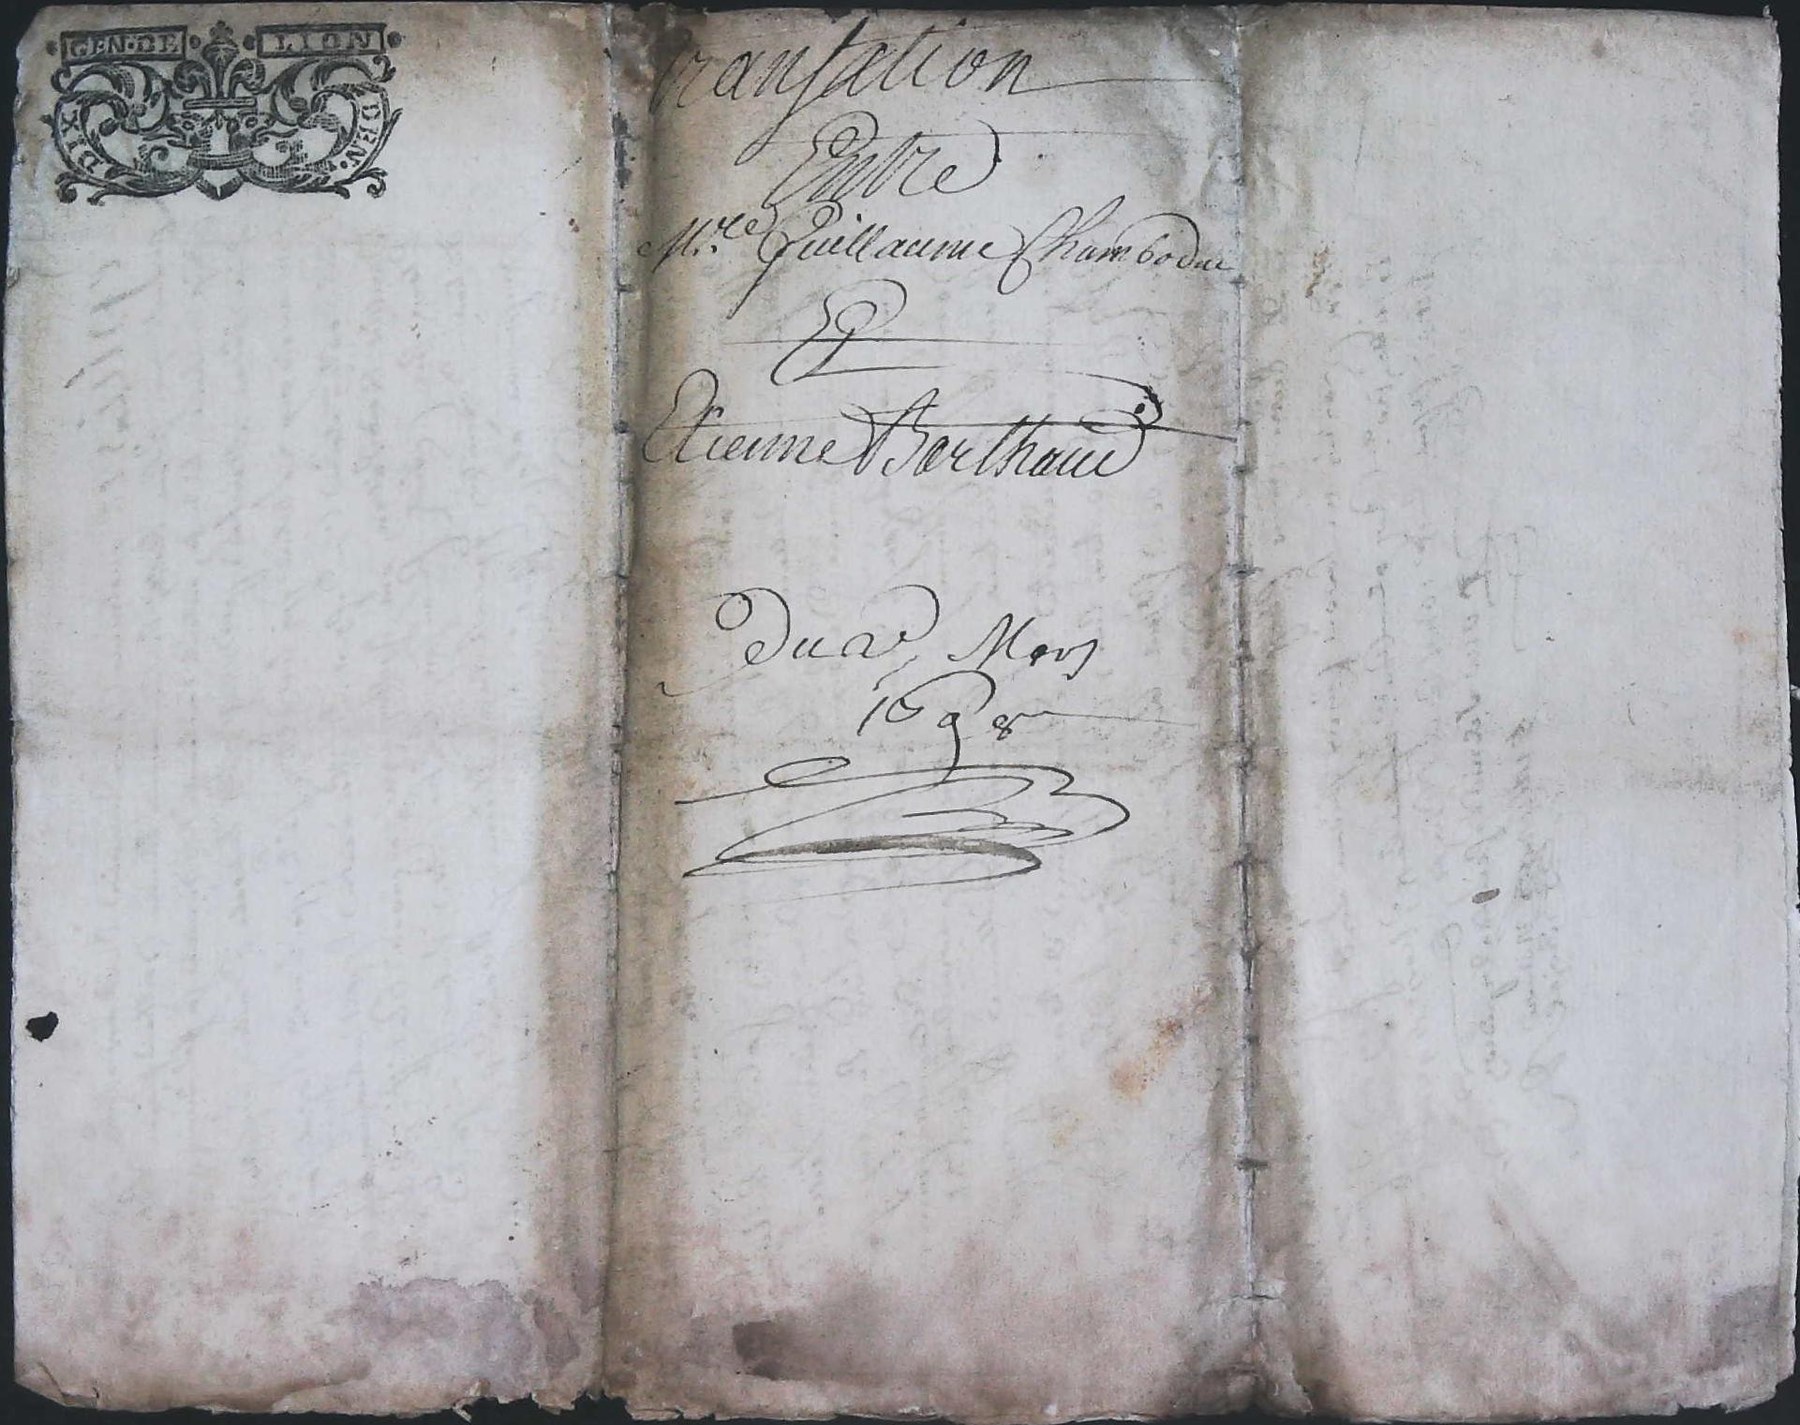 GEN·DE LION
DIX DEN·RS
Transation
Entre
Mre Guillaume Chamboduc
Et
Etienne Berthaud
Du 2e Mars
1698